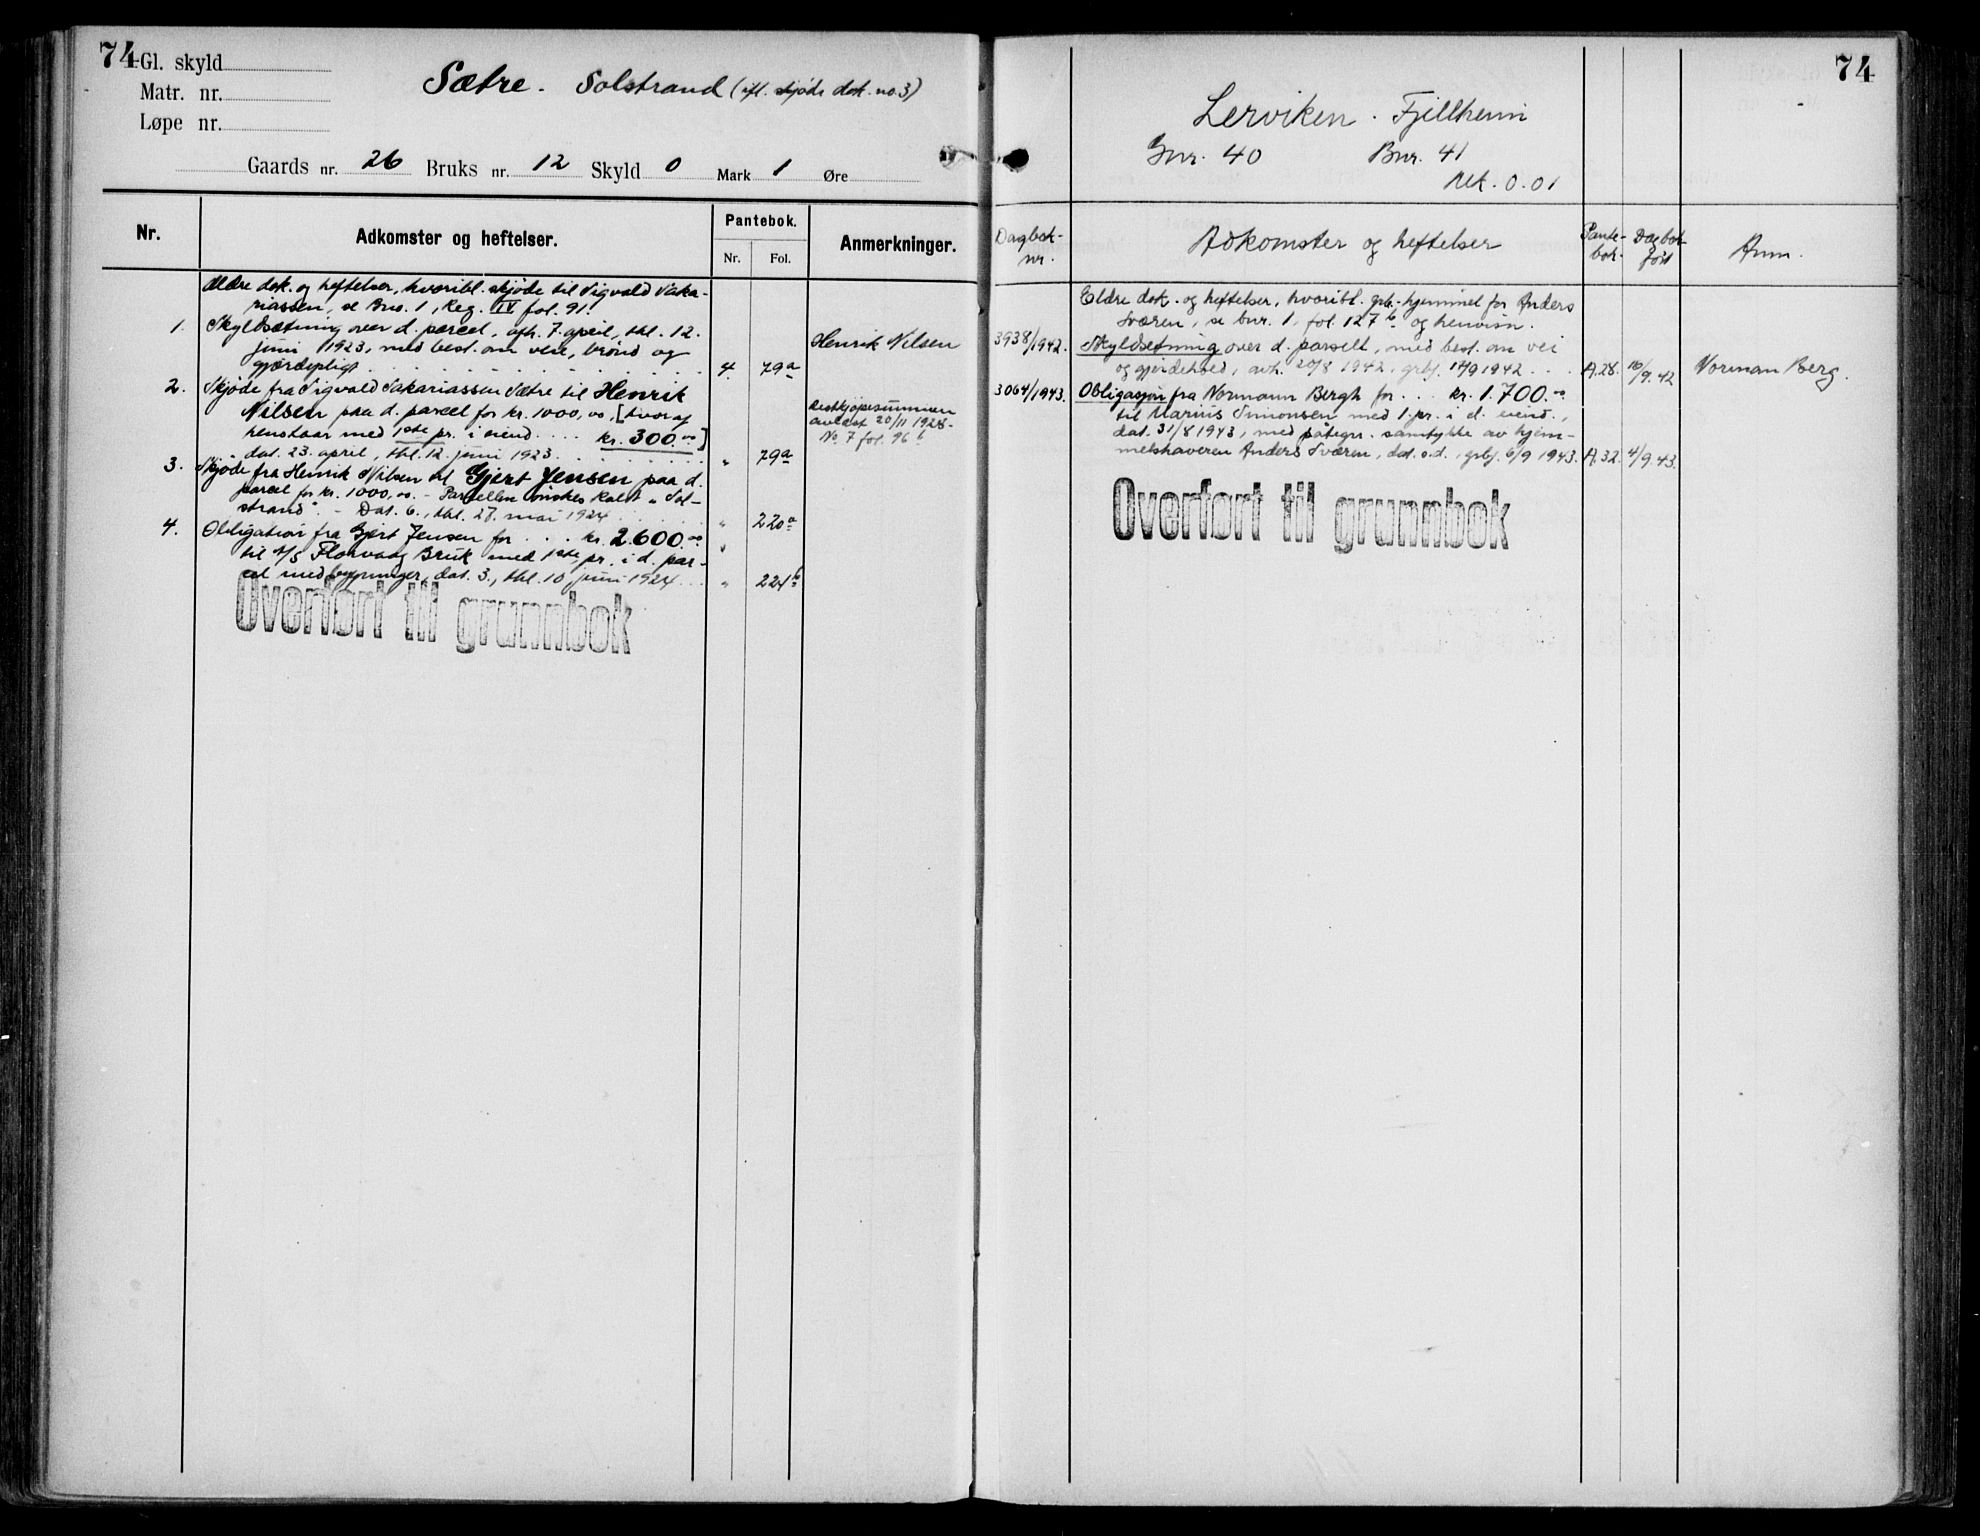 74
Gl. skyld
Matr. nr.
Løpe nr.
Sætre. Solstrand (ifl. skjøde dok. no 3)
Gaards nr. 26 Bruks nr. 12 Skyld 0 Mark 1 Øre
Nr. Adkomster og heftelser. Pantebok. Anmerkninger.
Nr. Fol.
Ældre dok. og heftelser, hvoribl. skjøde til Sigvald Saka-
riassen, se Bno. 1, Reg. IV fol. 91.
1. Skyldsætning over d. parcel, afh. 7. april, thl. 12.
juni 1923, med best. om veie, brønd og
gjærdepligt 4. 79a
Henrik Nilsen
2. Skjøde fra Sigvald Sakariassen Sætre til Henrik
Nilsen paa d. parcel for kr. 1000,00, [hvoraf
henstaar med 1ste pr. i eiend. .... kr. 300.00]
dat. 23. april, thl. 12. juni 1923 " 79a
Restkjøpesummen
avlæst 20/11 1928.
No 7 fol. 96b
3. Skjøde fra Henrik Nilsen til Gjert Jensen paa d.
parcel for kr. 1000,00. - Parcellen ønskes kaldt "Sol-
strand". - Dat. 6., thl. 27. mai 1924 " 220a
4. Obligation fra Gjert Jensen for ... kr. 2600.00
til A/S Florvaag Bruk med 1ste pr. i d. par-
cel med bygninger, dat. 3., thl. 10 juni 1924 " 224b
Overført til grunnbok
74
Lerviken. Fjellheim
Gnr. 40 Bnr. 41
Mk. 0.01
Dagbok-
nr.
Adkomster og heftelser
Pante-
bok.
Dagbok
ført
Anm.
Eldre dok. og heftelser, hvoribl. grb.-hjemmel for Anders
Sværen, se bnr. 1, fol. 127b og henvisn.
3938/1942. Skyldsetning over d. parsell, med best. om vei
og gjerdehold, avh. 20/8 1942, grbf. 17/9 1942 ... A.28. 16/9.42 Norman Berg.
3064/1943. Obligasjon fra Normann Bergh for ... kr. 1.700.00
til Marius Simonsen med 1. pr. i d. eiend.,
dat. 31/8 1943, med påtegn. samtykke av hjem-
melshaveren Anders Sværen, dat. s.d., grbf. 6/9 1943. A.32. 4/9.43.
Overført til grunnbok